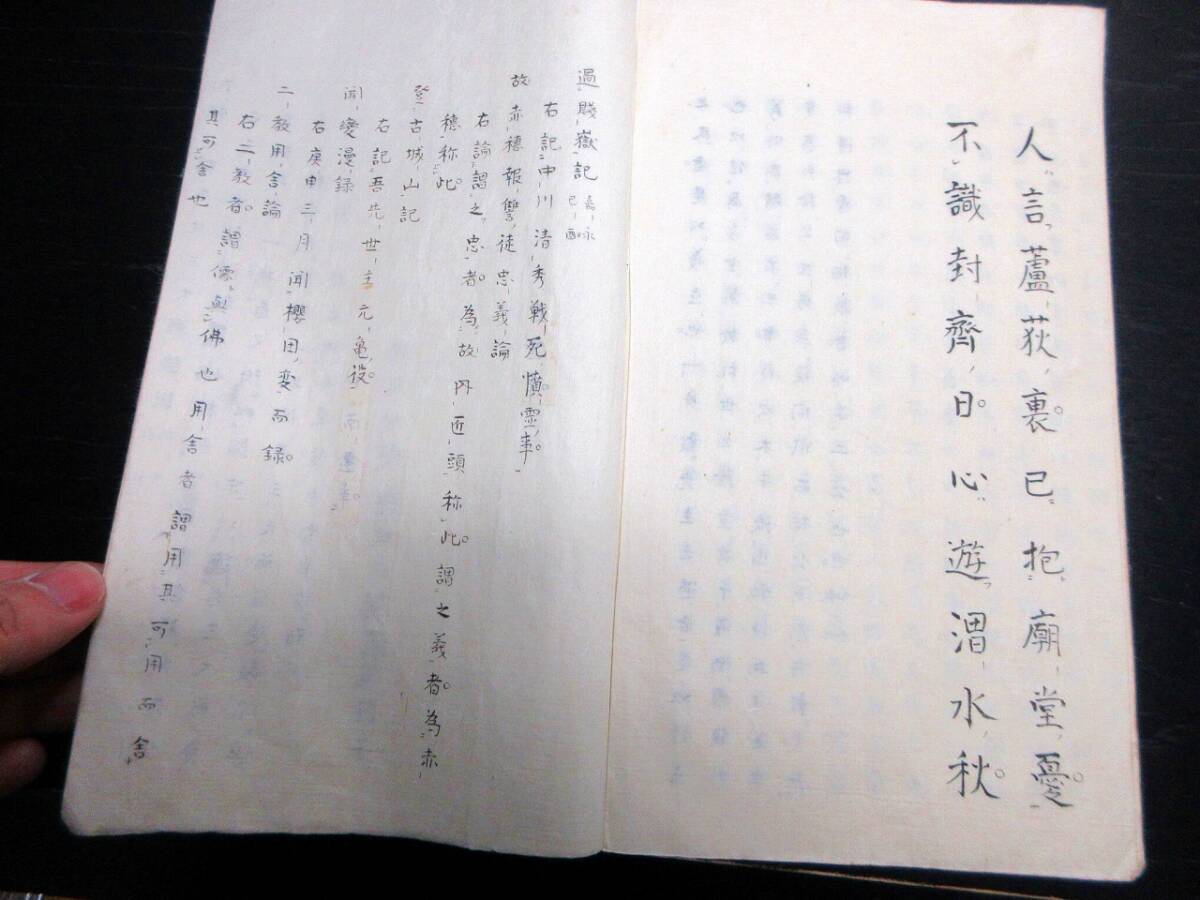 人言蘆荻裏已抱廟堂憂
不識封齊日心遊渭水秋
過賤嶽記 嘉永己酉
右記中川清秀戰死憤靈事
故赤穗報讐徒忠義論
右論謂之忠者為故内匠頭称此謂之義者為赤
穗称此
登古城山記
右記吾先世主元亀役
聞變漫録
右庚申三月聞櫻田変而録
二教用舎論
右二教者謂儒與佛也用舎者謂用其可用而舎
其可舎也